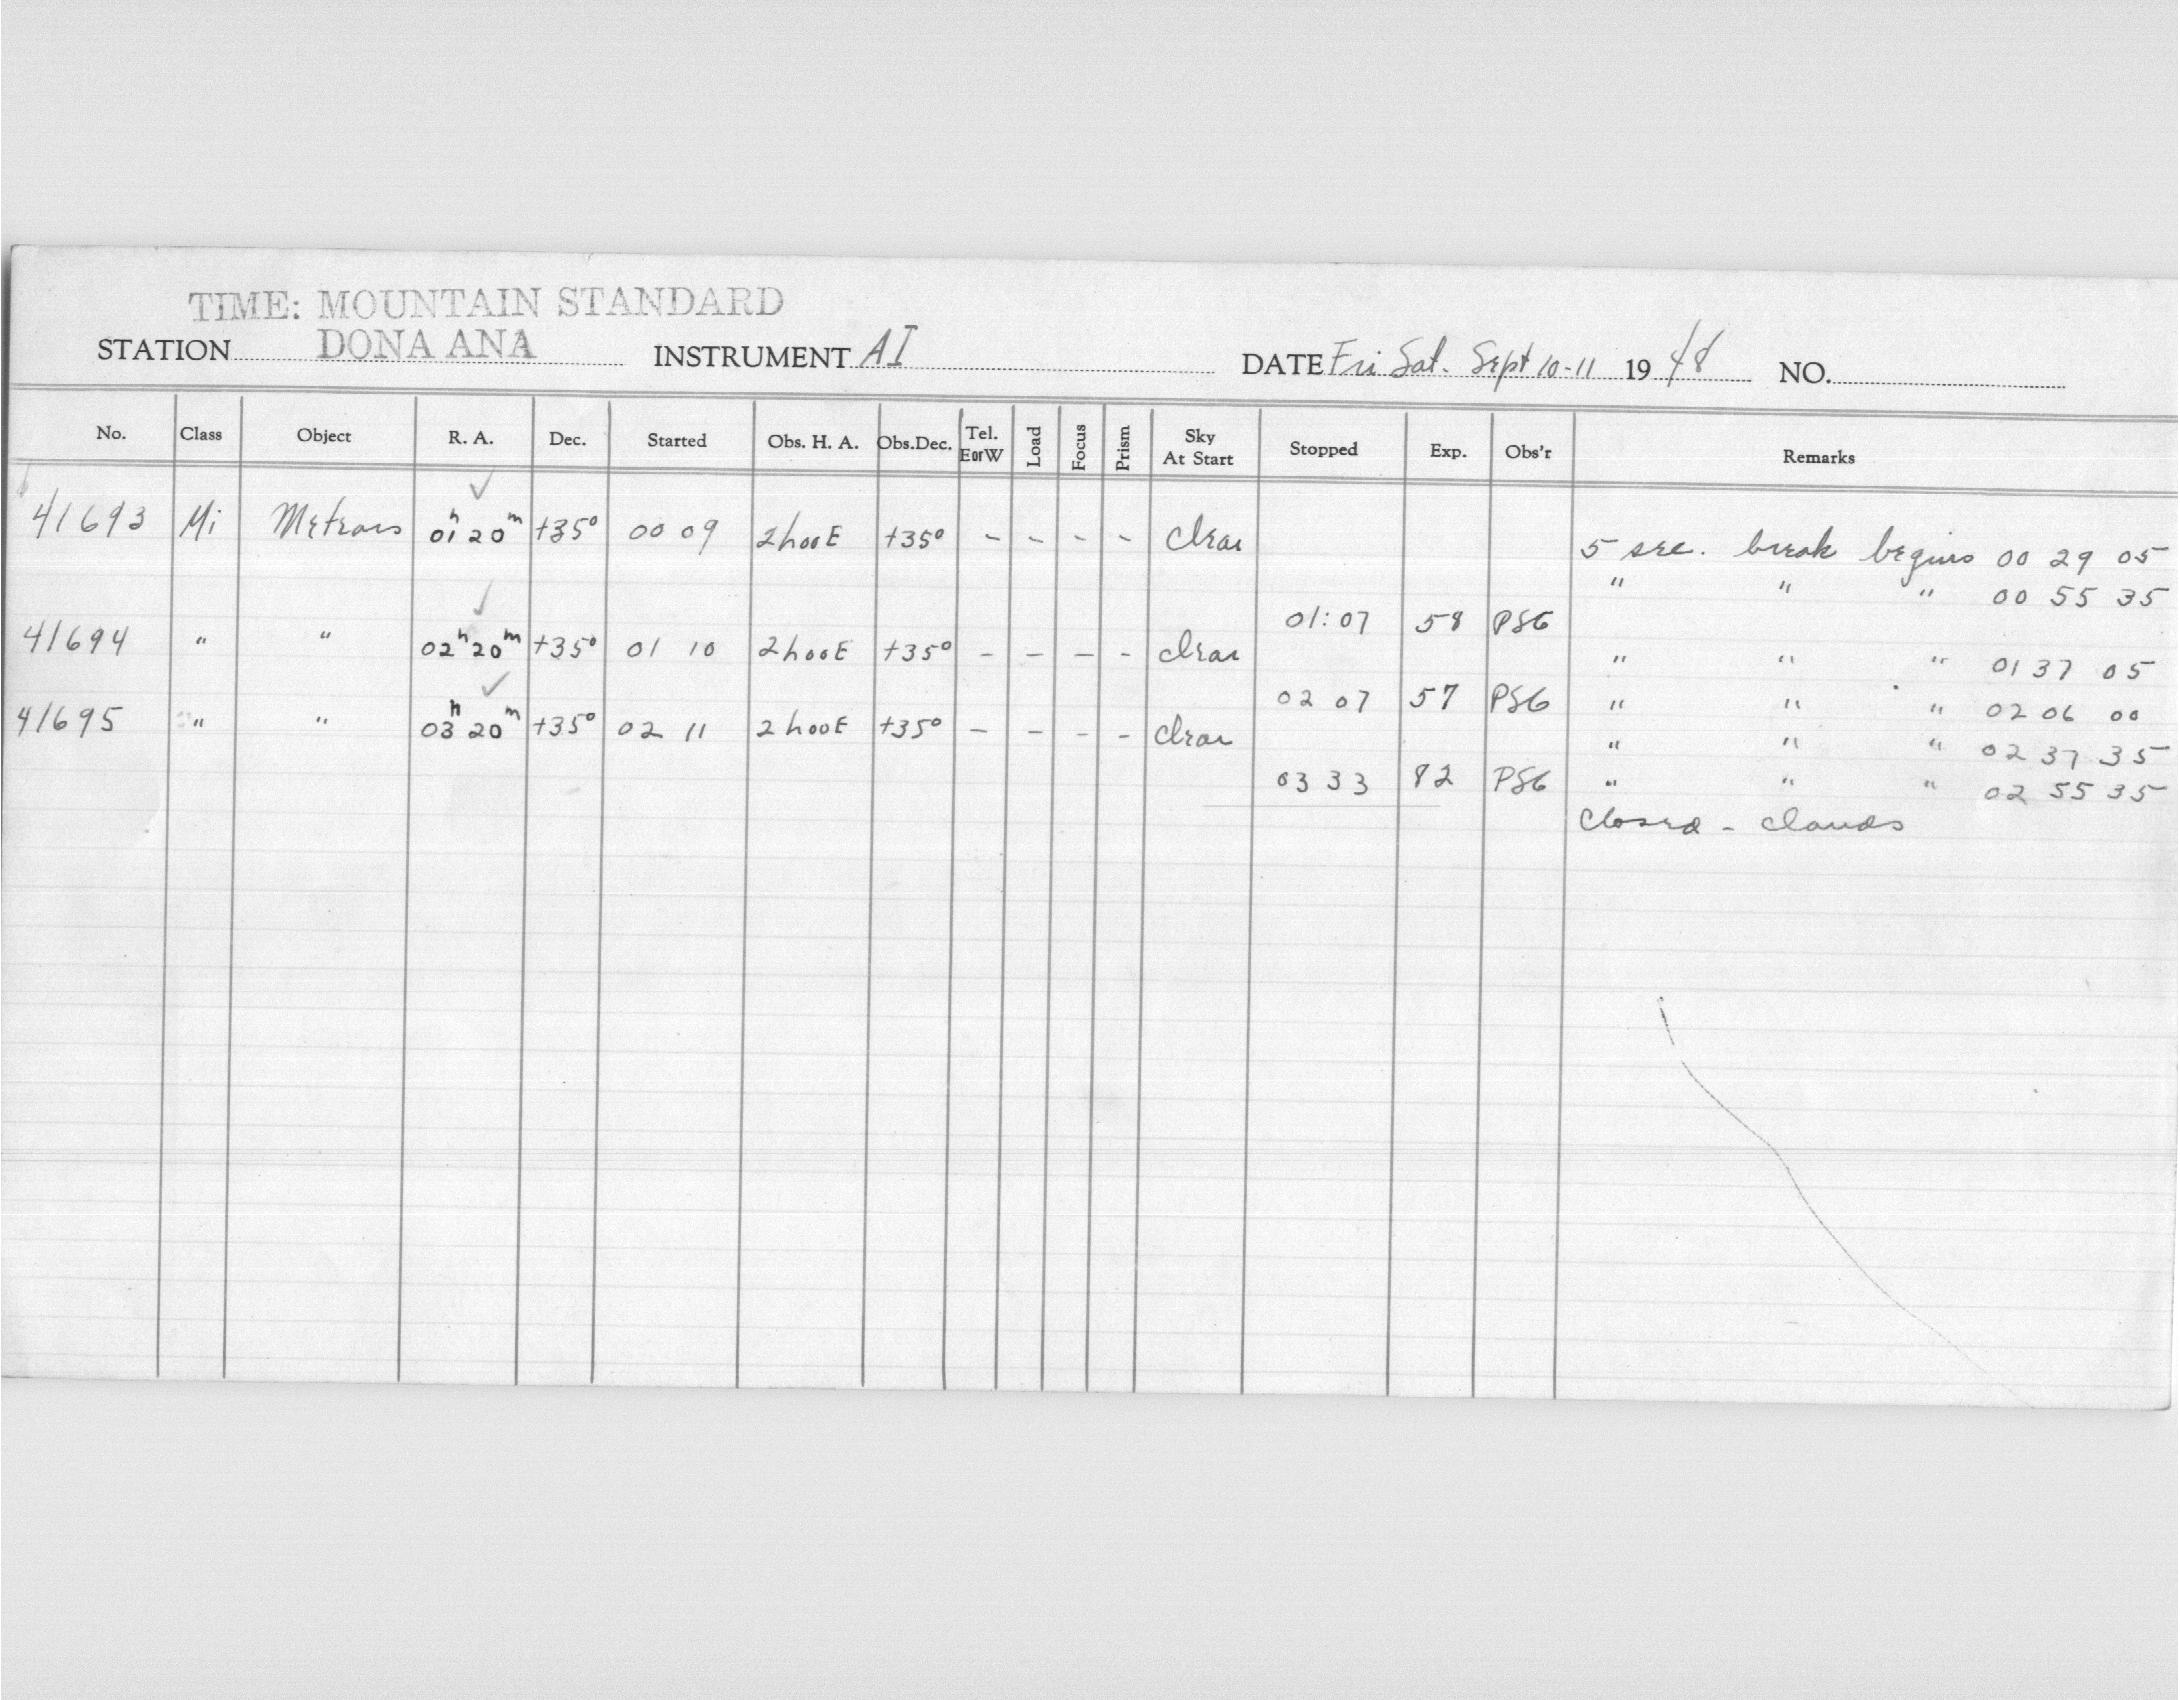 TIME: MOUNTAIN STANDARD
STATION DONA ANA INSTRUMENT AI DATE Fri Sat. Sept 10-11 1948 NO.
No. Class Object R. A. Dec. Started Obs. H. A. Obs.Dec. Tel. E or W Load Focus Prism Sky At Start Stopped Exp. Obs'r Remarks
41693 Mi Meteors 01h 20m +35° 00 09 2h00E +35° - - - - Clear 5 sec. break begins 00 29 05
" " " 00 55 35
01:07 58 PSG
41694 " " 02h 20m +35° 01 10 2h00E +35° - - - - Clear " " " 01 37 05
02 07 57 PSG " " " 02 06 00
41695 " " 03h 20m +35° 02 11 2h00E +35° - - - - Clear " " " 02 37 35
03 33 82 PSG " " " 02 55 35
Closed - Clouds